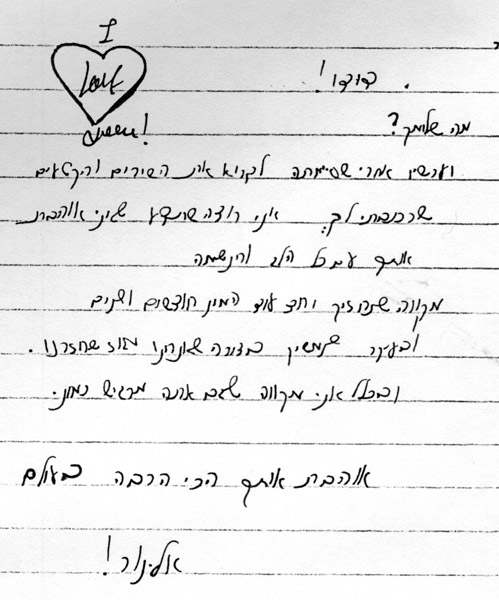 I
Love
Queen!
דודו!
מה שלומך?
ועכשיו אחרי שסיימתה לקרוא את השירים והקטעים
שכתבתי לך. אני רוצה שתדע שאני אוהבת
אותך עם כל הלב והנשמה
מקווה שנחזיק יחד עוד המון חודשים ושנים
ובעיקר שנמשיך בצורה שאנחנו מאז שחזרנו.
ובכלל אני מקווה שגם אתה מרגיש כמוני.
אוהבת אותך הכי הרבה בעולם
אלינור!